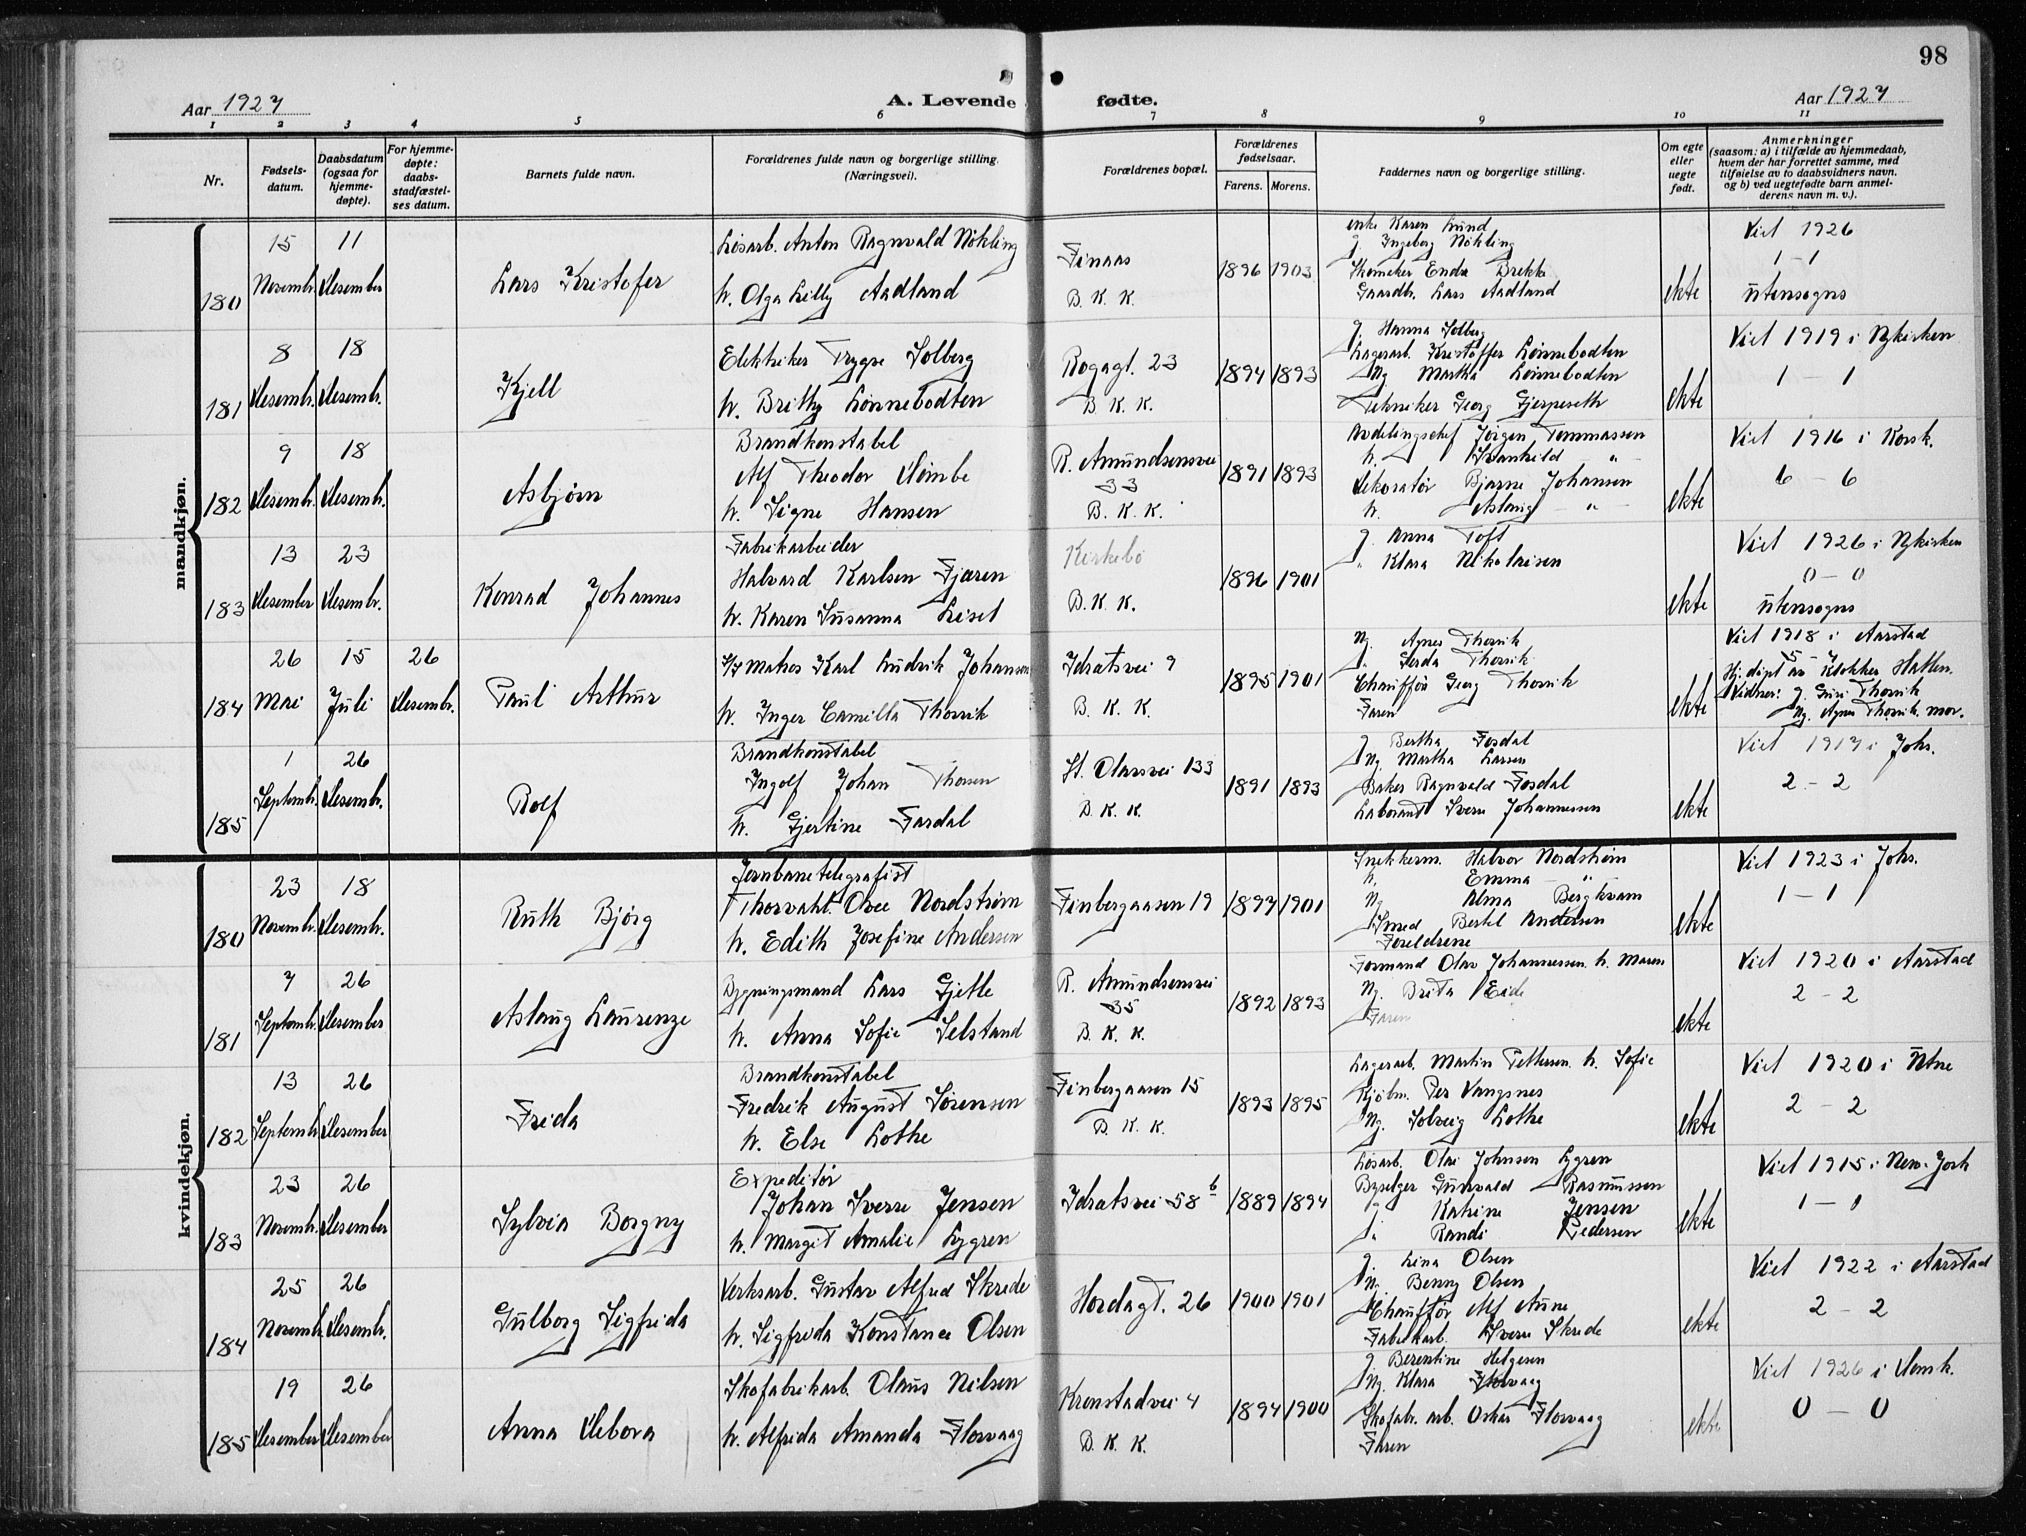 98
Aar 1927
A. Levende fødte.
Aar 1927
1 2 3 4 5 6 7 8 9 10 11
Nr.
Fødsels-
datum.
Daabsdatum
(ogsaa for
hjemme-
døpte).
For hjemme-
døpte:
daabs-
stadfæstel-
ses datum.
Barnets fulde navn.
Forældrenes fulde navn og borgerlige stilling.
(Næringsvei).
Forældrenes bopæl.
Forældrenes
fødselsaar.
Farens. Morens.
Faddernes navn og borgerlige stilling.
Om egte
eller
uegte
født.
Anmerkninger
(saasom: a) i tilfælde av hjemmedaab,
hvem der har forrettet samme, med
tilføielse av to daabsvidners navn.
og b) ved uegtefødte barn anmel-
derens navn m. v.).
mandkjøn.
180
15 Novembr.
11 Desember
Lars Kristofer
Løsarb. Anton Ragnvald Nökling
h. Olga Lilly Aadland
Finaas
B. K. K.
1896 1903
enke Karen Lund
g. Ingeborg Nökling
Skomaker Enda Brekke
Gaardbr. Lars Aadland
ekte
Viet 1926
1 - 1
utensogns
181
8 Desembr.
18 Desembr.
Kjell
Elektriker Trygve Solberg
h. Britty Lönnebodten
Rogagt. 23
B. K. K.
1894 1893
g. Hanna Solberg
Lagerarb. Kristoffer Lönnebodten
Ng. Martha Lönnebodten
Tekniker Georg Gjerpeseth
ekte
Viet 1919 i Nykirken
1 - 1
182
9 Desembr.
18 Desembr.
Asbjørn
Brandkonstabel
Alf Theodor Dömbe
h. Signe Hansen
R. Amundsensvei
33
B. K. K.
1891 1893
Avdelingschef Jörgen Tommassen
h. Svanhild - " -
Dekoratør Bjarne Johansen
h. Aslaug - " -
ekte
Viet 1916 i Korsk.
6 - 6
183
13 Desember
23 Desembr.
Konrad Johannes
Fabrikarbeider
Halvard Karlsen Fjæren
h. Karen Susanna Liset
Kirkebö
B. K. K.
1896 1901
g. Anna Toft
" Klara Nikolaisen
ekte
Viet 1926 i Nykirken
0 - 0
utensogns
184
26 Mai
15 Juli
26 Desembr.
Paul Arthur
S/Smakes Karl Ludvik Johansen
h. Inger Camilla Thorvik
Idrætsvei 9
B. K. K.
1895 1901
Ng. Agnes Thorvik
g. Gerda Thorvik
Chauffør Georg Thorvik
Faren
ekte
Viet 1918 i Aarstad
Hj. döpt av Klokker Hatlen.
Vidner: g. Guri Thorvik
Ng. Agnes Thorvik. mor.
185
1 Septembr.
26 Desembr.
Rolf
Brandkonstabel
Ingolf Johan Thorsen
h. Gjertine Fardal
St. Olavsvei 133
B. K. K.
1891 1893
g. Bertha Fosdal
Ng. Martha Larsen
Baker Ragnvald Fosdal
Laborant Sverre Johannessen
ekte
Viet 1917 i Johs.
2 - 2
kvindekjøn.
180
23 Novembr.
18 Desembr.
Ruth Bjørg
Jernbanetelegrafist
Thorvahl. Ovee Nordstrøm
h. Edith Josefine Andersen
Finbergaasen 19
1897 1901
Snekkerm. Halvor Nordstrøm
h. Emma - " -
Ng Alma Bergkvam
Smed Bertel Andersen
Foreldrene
ekte
Viet 1923 i Johs.
1 - 1
181
7 Septembr.
26 Desember
Aslaug Laurenze
Bygningsmand Lars Gjetle
h. Anna Sofie Selstand
R. Amundsensvei
35
B. K. K.
1892 1893
Formand Olav Johannessen h. Maren
Ng. Brita Eide
Faren
ekte
Viet 1920 i Aarstad
2 - 2
182
13 Septembr.
26 Desember
Frida
Brandkonstabel
Fredrik August Sörensen
h. Else Lothe
Finbergaasen 15
B. K. K.
1893 1895
Lagerarb. Martin Pettersen h. Sofie
Kjøbm. Per Vangsnes
Ng. Solveig Lothe
ekte
Viet 1920 i Utne
2 - 2
183
23 Novembr.
26 Desember
Sylvia Borgny
Expeditør
Johan Sverre Jensen
h. Margit Amalie Lygren
Idrætsvei 58 b
1889 1894
Løsarb. Olai Johnsen Lygren
Byselger Gunvald Rasmussen
g. Katrine Jensen
g. Randi Pedersen
ekte
Viet 1915 i New-York
1 - 1
184
25 Novembr.
26 Desembr.
Gulborg Sigfrida
Verksarb. Gustav Alfred Skrede
h. Sigfrida Konstance Olsen
Hordagt. 26
1900 1901
g. Lina Olsen
Ng. Benny Olsen
Chauffør Alf Aune
Fabrikarb. Sverre Skrede
ekte
Viet 1922 i Aarstad
2 - 2
185
19 Desember
26 Desember
Anna Debora
Skofabrikarb. Olaus Nilsen
h. Alfrida Amanda Florvaag
Kronstadvei 4
B. K. K.
1894 1900
g. Berentine Helgesen
Ng. Klara Florvaag
Skofabr. arb. Oskar Florvaag
Faren
ekte
Viet 1926 i Domk.
0 - 0